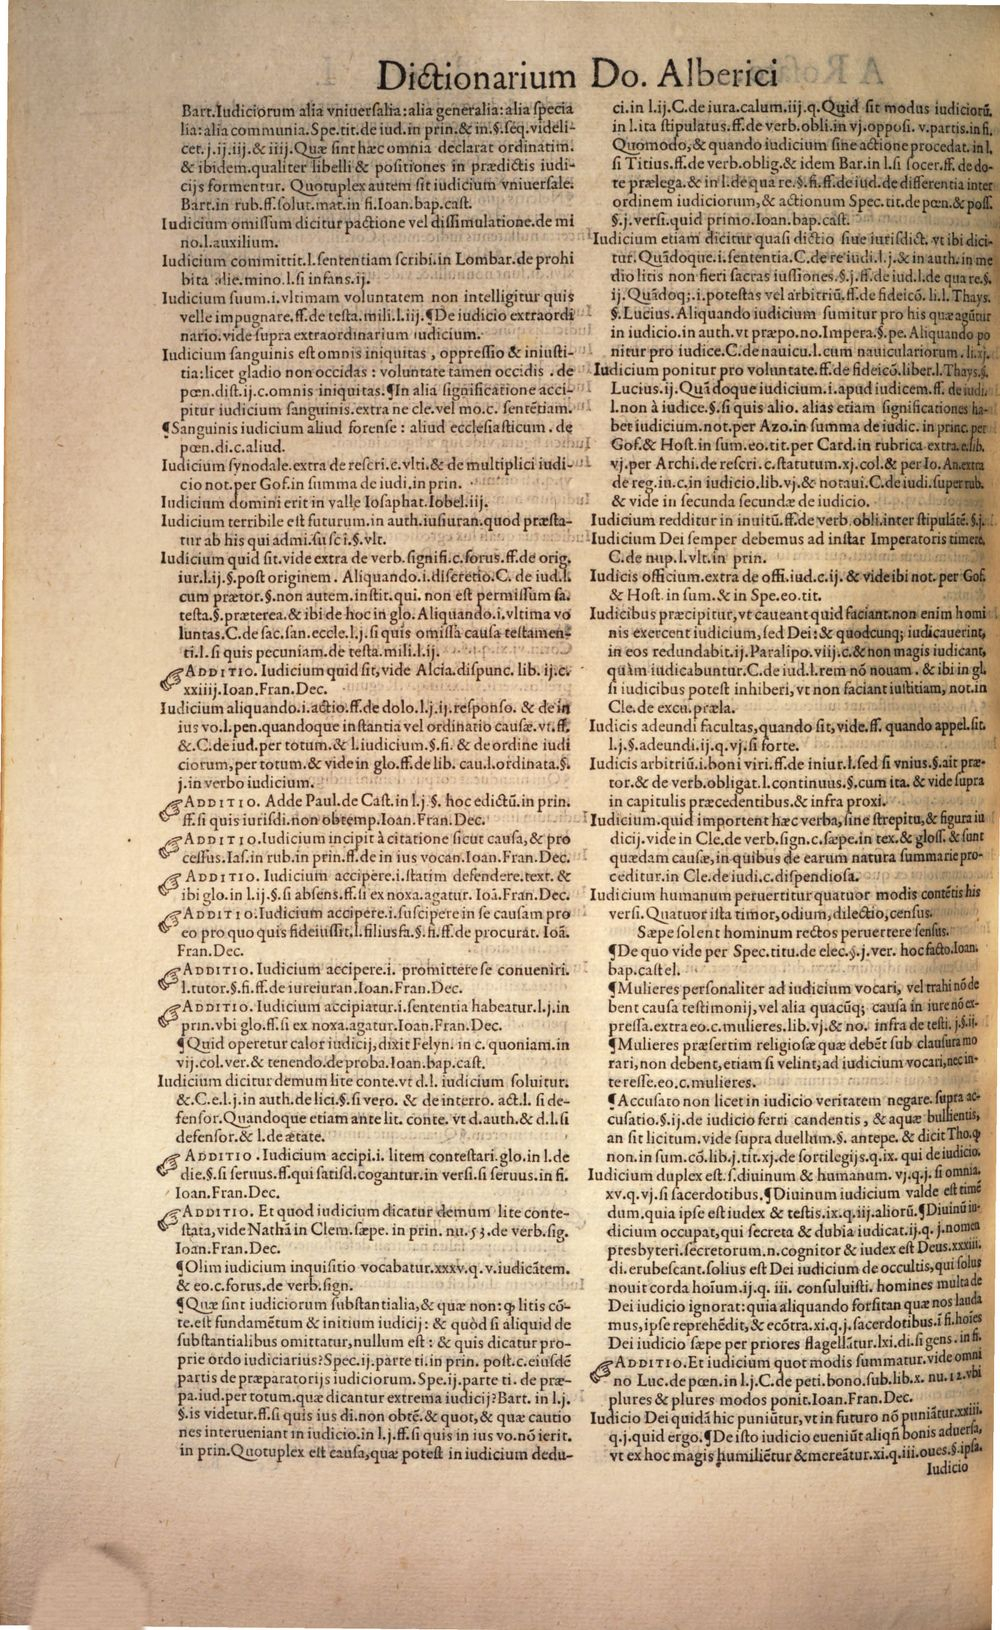 Dictionarium Do. Alberici
Bart.Iudiciorum alia vniuersalia:alia generalia:alia specia
lia:alia communia.Spe.tit.de iud.in prin.& in.§.seq.videli-
cet.j.ij.iij.& iiij.Quæ sint hæc omnia declarat ordinatim.
& ibidem.qualiter libelli & positiones in prædictis iudi-
cijs formentur. Quotuplex autem sit iudicium vniuersale.
Bart.in rub.ff.solut.mat.in fi.Ioan.bap.cast.
Iudicium omissum dicitur pactione vel dissimulatione.de mi
no.l.auxilium.
Iudicium committit.l.sententiam scribi.in Lombar.de prohi
bita alie.mino.l.si infans.ij.
Iudicium suum.i.vltimam voluntatem non intelligitur quis
velle impugnare.ff.de testa.mili.l.iij.¶De iudicio extraordi
nario.vide supra extraordinarium iudicium.
Iudicium sanguinis est omnis iniquitas, oppressio & iniusti-
tia:licet gladio non occidas: voluntate tamen occidis . de
pœn.dist.ij.c.omnis iniquitas.¶In alia significatione acci-
pitur iudicium sanguinis.extra ne cle.vel mo.c. sentētiam.
¶Sanguinis iudicium aliud forense: aliud ecclesiasticum . de
pœn.di.c.aliud.
Iudicium synodale.extra de rescri.c.vlti.& de multiplici iudi-
cio not.per Gof.in summa de iudi.in prin.
Iudicium domini erit in valle Iosaphat.Iobel.iij.
Iudicium terribile est futurum.in auth.iusiuran.quod præsta-
tur ab his qui admi.susci.§.vlt.
Iudicium quid sit.vide extra de verb.signifi.c.forus.ff.de orig.
iur.l.ij.§.post originem. Aliquando.i.discretio.C. de iud.l.
cum prætor.§.non autem.instit.qui. non est permissum fa.
testa.§.præterea.& ibi de hoc in glo. Aliquando.i.vltima vo
luntas.C.de sac.san.eccle.l.j.si quis omissa causa testamen-
ti.l.si quis pecuniam.de testa.mili.l.ij.
ADDITIO. Iudicium quid sit, vide Alcia.dispunc. lib. ij.c.
xxiiij.Ioan.Fran.Dec.
Iudicium aliquando.i.actio.ff.de dolo.l.j.ij.responso. & de in
ius vo.l.pen.quandoque instantia vel ordinatio causæ.vt.ff.
&.C.de iud.per totum.& l.iudicium.§.fi.& de ordine iudi
ciorum,per totum.& vide in glo.ff.de lib. cau.l.ordinata.§.
j.in verbo iudicium.
ADDITIO. Adde Paul.de Cast.in l.j.§. hoc edictū.in prin.
ff.si quis iurisdi.non obtemp.Ioan.Fran.Dec.
ADDITIO.Iudicium incipit à citatione sicut causa,& pro
cessus.Ias.in rub.in prin.ff.de in ius vocan.Ioan.Fran.Dec.
ADDITIO. Iudicium accipere.i.statim defendere.text. &
ibi glo.in l.ij.§.si absens.ff.si ex noxa.agatur. Ioā.Fran.Dec.
ADDITIO.Iudicium accipere.i.suscipere in se causam pro
eo pro quo quis fideiussit.l.filiusfa.§.fi.ff.de procurat. Ioā.
Fran.Dec.
ADDITIO. Iudicium accipere.i. promittere se conueniri.
l.tutor.§.fi.ff.de iureiuran.Ioan.Fran.Dec.
ADDITIO. Iudicium accipiatur.i.sententia habeatur.l.j.in
prin.vbi glo.ff.si ex noxa.agatur.Ioan.Fran.Dec.
¶Quid operetur calor iudicij,dixit Felyn. in c. quoniam.in
vij.col.ver.& tenendo.de proba.Ioan.bap.cast.
Iudicium dicitur demum lite conte.vt d.l. iudicium soluitur.
&.C.e.l.j.in auth.de lici.§.si vero. & de interro. act.l. si de-
fensor.Quandoque etiam ante lit. conte. vt d.auth.& d.l.si
defensor.& l.de ætate.
ADDITIO . Iudicium accipi.i. litem contestari.glo.in l.de
die.§.si seruus.ff.qui satisd.cogantur.in versi.si seruus.in fi.
Ioan.Fran.Dec.
ADDITIO. Et quod iudicium dicatur demum lite conte-
stata,vide Nathā in Clem.sæpe. in prin. nu.53.de verb.sig.
Ioan.Fran.Dec.
¶Olim iudicium inquisitio vocabatur.xxxv.q.v.iudicātem.
& eo.c.forus.de verb.sign.
¶Quæ sint iudiciorum substantialia,& quæ non: ꝙ litis cō-
te.est fundamētum & initium iudicij: & quòd si aliquid de
substantialibus omittatur,nullum est: & quis dicatur pro-
prie ordo iudiciarius?Spec.ij.parte ti.in prin. post.c.eiusdē
partis de præparatorijs iudiciorum. Spe.ij.parte ti. de præ-
pa.iud.per totum.quæ dicantur extrema iudicij?Bart. in l.j.
§.is videtur.ff.si quis ius di.non obtē.& quot,& quæ cautio
nes interueniant in iudicio.in l.j.ff.si quis in ius vo.nō ierit.
in prin.Quotuplex est causa,quæ potest in iudicium dedu-
ci.in l.ij.C.de iura.calum.iij.q.Quid sit modus iudiciorū.
in l.ita stipulatus.ff.de verb.obli.in vj.opposi. v.partis.in fi.
Quomodo,& quando iudicium sine actione procedat. in l.
si Titius.ff.de verb.oblig.& idem Bar.in l.si socer.ff.de do-
te prælega.& in l.de qua re.§.fi.ff.de iud.de differentia inter
ordinem iudiciorum,& actionum Spec.tit.de pœn.& poss.
§.j.versi.quid primo.Ioan.bap.cast.
Iudicium etiam dicitur quasi dictio siue iurisdict. vt ibi dici-
tur.Quādoque.i.sententia.C.de re iudi.l.j.& in auth.in me
dio litis non fieri sacras iussiones.§.j.ff.de iud.l.de qua re.§.
ij.Quādoq;.i.potestas vel arbitriū.ff.de fideicō.li.l.Thays.
§.Lucius.Aliquando iudicium sumitur pro his quæ agūtur
in iudicio.in auth.vt præpo.no.Impera.§.pe.Aliquando po
nitur pro iudice.C.de nauicu.l.cum nauiculariorum.li.xj.
Iudicium ponitur pro voluntate.ff.de fideicō.liber.l.Thays.§.
Lucius.ij.Quādoque iudicium.i.apud iudicem.ff.de iudi.
l.non à iudice.§.si quis alio. alias etiam significationes ha-
bet iudicium.not.per Azo.in summa de iudic. in princ. per
Gof.& Host.in sum.eo.tit.per Card.in rubrica extra.e.lib.
vj.per Archi.de rescri.c.statutum.xj.col.& per Io. An.extra
de reg.iu.c.in iudicio.lib.vj.& notaui.C.de iudi.super rub.
& vide in secunda secundæ de iudicio.
Iudicium redditur in inuitū.ff.de verb.obli.inter stipulātē.§.j.
Iudicium Dei semper debemus ad instar Imperatoris timere.
C.de nup.l.vlt.in prin.
Iudicis officium.extra de offi.iud.c.ij.& vide ibi not. per Gof.
& Host in sum.& in Spe.eo.tit.
Iudicibus præcipitur,vt caueant quid faciant.non enim homi
nis exercent iudicium,sed Dei:& quodcunq; iudicauerint,
in eos redundabit.ij.Paralipo.viij.c.& non magis iudicant,
quàm iudicabuntur.C.de iud.l.rem nō nouam . & ibi in gl.
si iudicibus potest inhiberi,vt non faciant iustitiam, not.in
Cle.de excu.præla.
Iudicis adeundi facultas,quando sit,vide.ff. quando appel.sit.
l.j.§.adeundi.ij.q.vj.si forte.
Iudicis arbitriū.i.boni viri.ff.de iniur.l.sed si vnius.§.ait præ-
tor.& de verb.obligat.l.continuus.§.cum ita. & vide supra
in capitulis præcedentibus.& infra proxi.
Iudicium.quid importent hæc verba,sine strepitu,& figura iu
dicij.vide in Cle.de verb.sign.c.sæpe.in tex.& gloss. & sunt
quædam causæ,in quibus de earum natura summarie pro-
ceditur.in Cle.de iudi.c.dispendiosa.
Iudicium humanum peruertitur quatuor modis contētis his
versi.Quatuor ista timor,odium,dilectio,census.
Sæpe solent hominum rectos peruertere sensus.
¶De quo vide per Spec.titu.de elec.§.j.ver. hoc facto.Ioan.
bap.castel.
¶Mulieres personaliter ad iudicium vocari, vel trahi nō de
bent causa testimonij,vel alia quacūq; causa in iure nō ex-
pressa.extra eo.c.mulieres.lib.vj.& no. infra de testi. j.§.ij.
¶Mulieres præsertim religiosæ quæ debēt sub clausura mo
rari,non debent,etiam si velint,ad iudicium vocari,nec in-
teresse.eo.c.mulieres.
¶Accusato non licet in iudicio veritatem negare. supra ac-
cusatio.§.ij.de iudicio ferri candentis, & aquæ bullientis,
an sit licitum.vide supra duellum.§. antepe. & dicit Tho.ꝙ
non.in sum.cō.lib.j.tit.xj.de sortilegijs.q.ix. qui de iudicio.
Iudicium duplex est.s.diuinum & humanum. vj.q.j. si omnia.
xv.q.vj.si sacerdotibus.¶Diuinum iudicium valde est timē
dum.quia ipse est iudex & testis.ix.q.iij.aliorū.¶Diuinū iu-
dicium occupat,qui secreta & dubia iudicat.ij.q. j.nomen
presbyteri.secretorum.n.cognitor & iudex est Deus.xxxiii.
di.erubescant.solius est Dei iudicium de occultis,qui solus
nouit corda hoīum.ij.q. iii. consuluisti. homines multa de
Dei iudicio ignorat:quia aliquando forsitan quæ nos lauda
mus,ipse reprehēdit,& ecōtra.xi.q.j.sacerdotibus.ī fi.hoīes
Dei iudicio sæpe per priores flagellātur.lxi.di.si gens . in fi.
ADDITIO.Et iudicium quot modis summatur.vide omni
no Luc.de pœn.in l.j.C.de peti.bono.sub.lib.x. nu.12.vbi
plures & plures modos ponit.Ioan.Fran.Dec.
Iudicio Dei quidā hic puniūtur,vt in futuro nō puniātur.xxiii.
q.j.quid ergo.¶De isto iudicio eueniūt aliqn̄ bonis aduersa,
vt ex hoc magis humiliētur & mereātur.xi.q.iii.oues.§.ipsa.
Iudicio